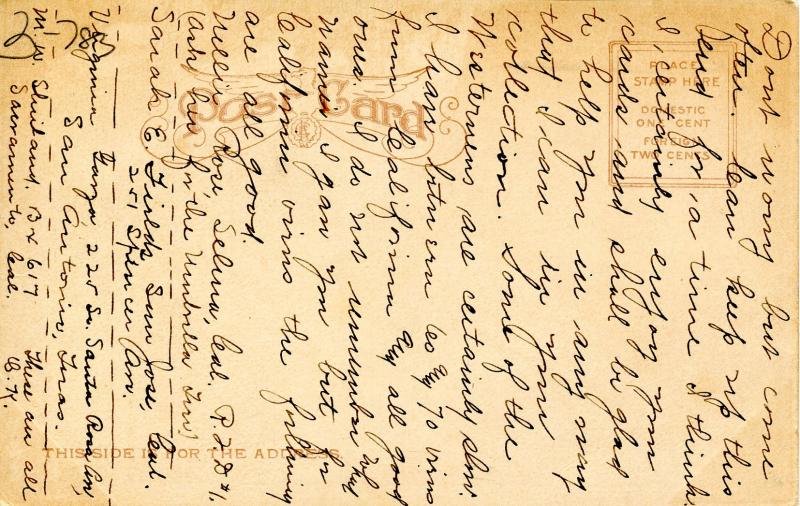 Dont worry but come
often. Can keep up this
send for a time I think.
I certainly enjoy your
cards and shall be glad
to help you in any way
that I can in your
collection. Some of the
Westerners are certainly slow.
I have between 60 & 70 views
from California & all good
ones. I do not remember what
names I gave you but for
California views the following
are all good.
Nellie Rose, Selma, Cal. R.F.D #1.
(ask her for the Umbrella Tree)
Sarah E. Fields San Jose, Cal.
251 Spencer Ave.
Virginia Garza 225 So. Santa Rosa Ave,
San Antonio, Texas.
M. W. Bx 617
Sacramento, Cal.
These are all
O.K.
Post Card
PLACE
STAMP HERE
DOMESTIC
ONE CENT
FOREIGN
TWO CENTS
THIS SIDE IS FOR THE ADDRESS.